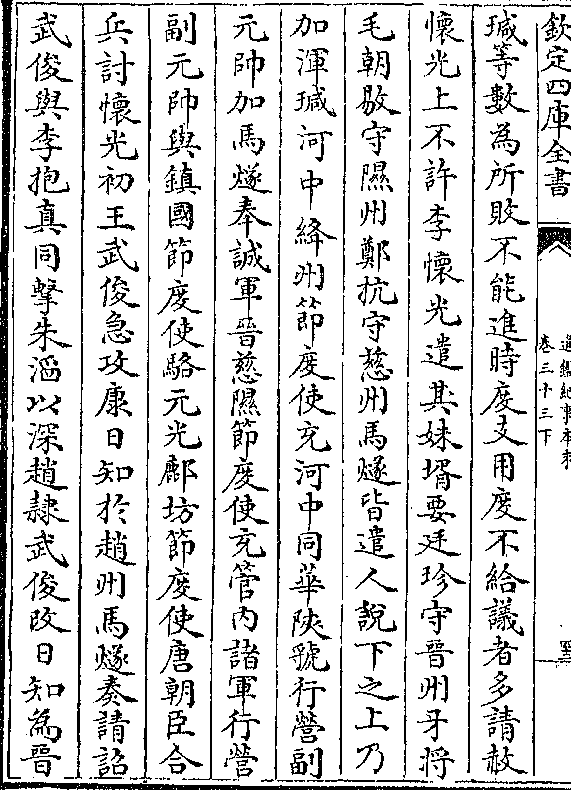 欽定四庫全書
通鑑紀事本末
卷三十三下
瑊等數為所敗不能進時度支用度不給議者多請赦
懷光上不許李懷光遣其妹壻要廷珍守晉州牙將
毛朝敭守隰州鄭抗守慈州馬燧皆遣人說下之上乃
加渾瑊河中絳州節度使充河中同華陜虢行營副
元帥加馬燧奉誠軍晉慈隰節度使充管內諸軍行營
副元帥與鎮國節度使駱元光鄜坊節度使唐朝臣合
兵討懷光初王武俊急攻康日知於趙州馬燧奏請詔
武俊與李抱真同擊朱滔以深趙隷武俊改日知為晉